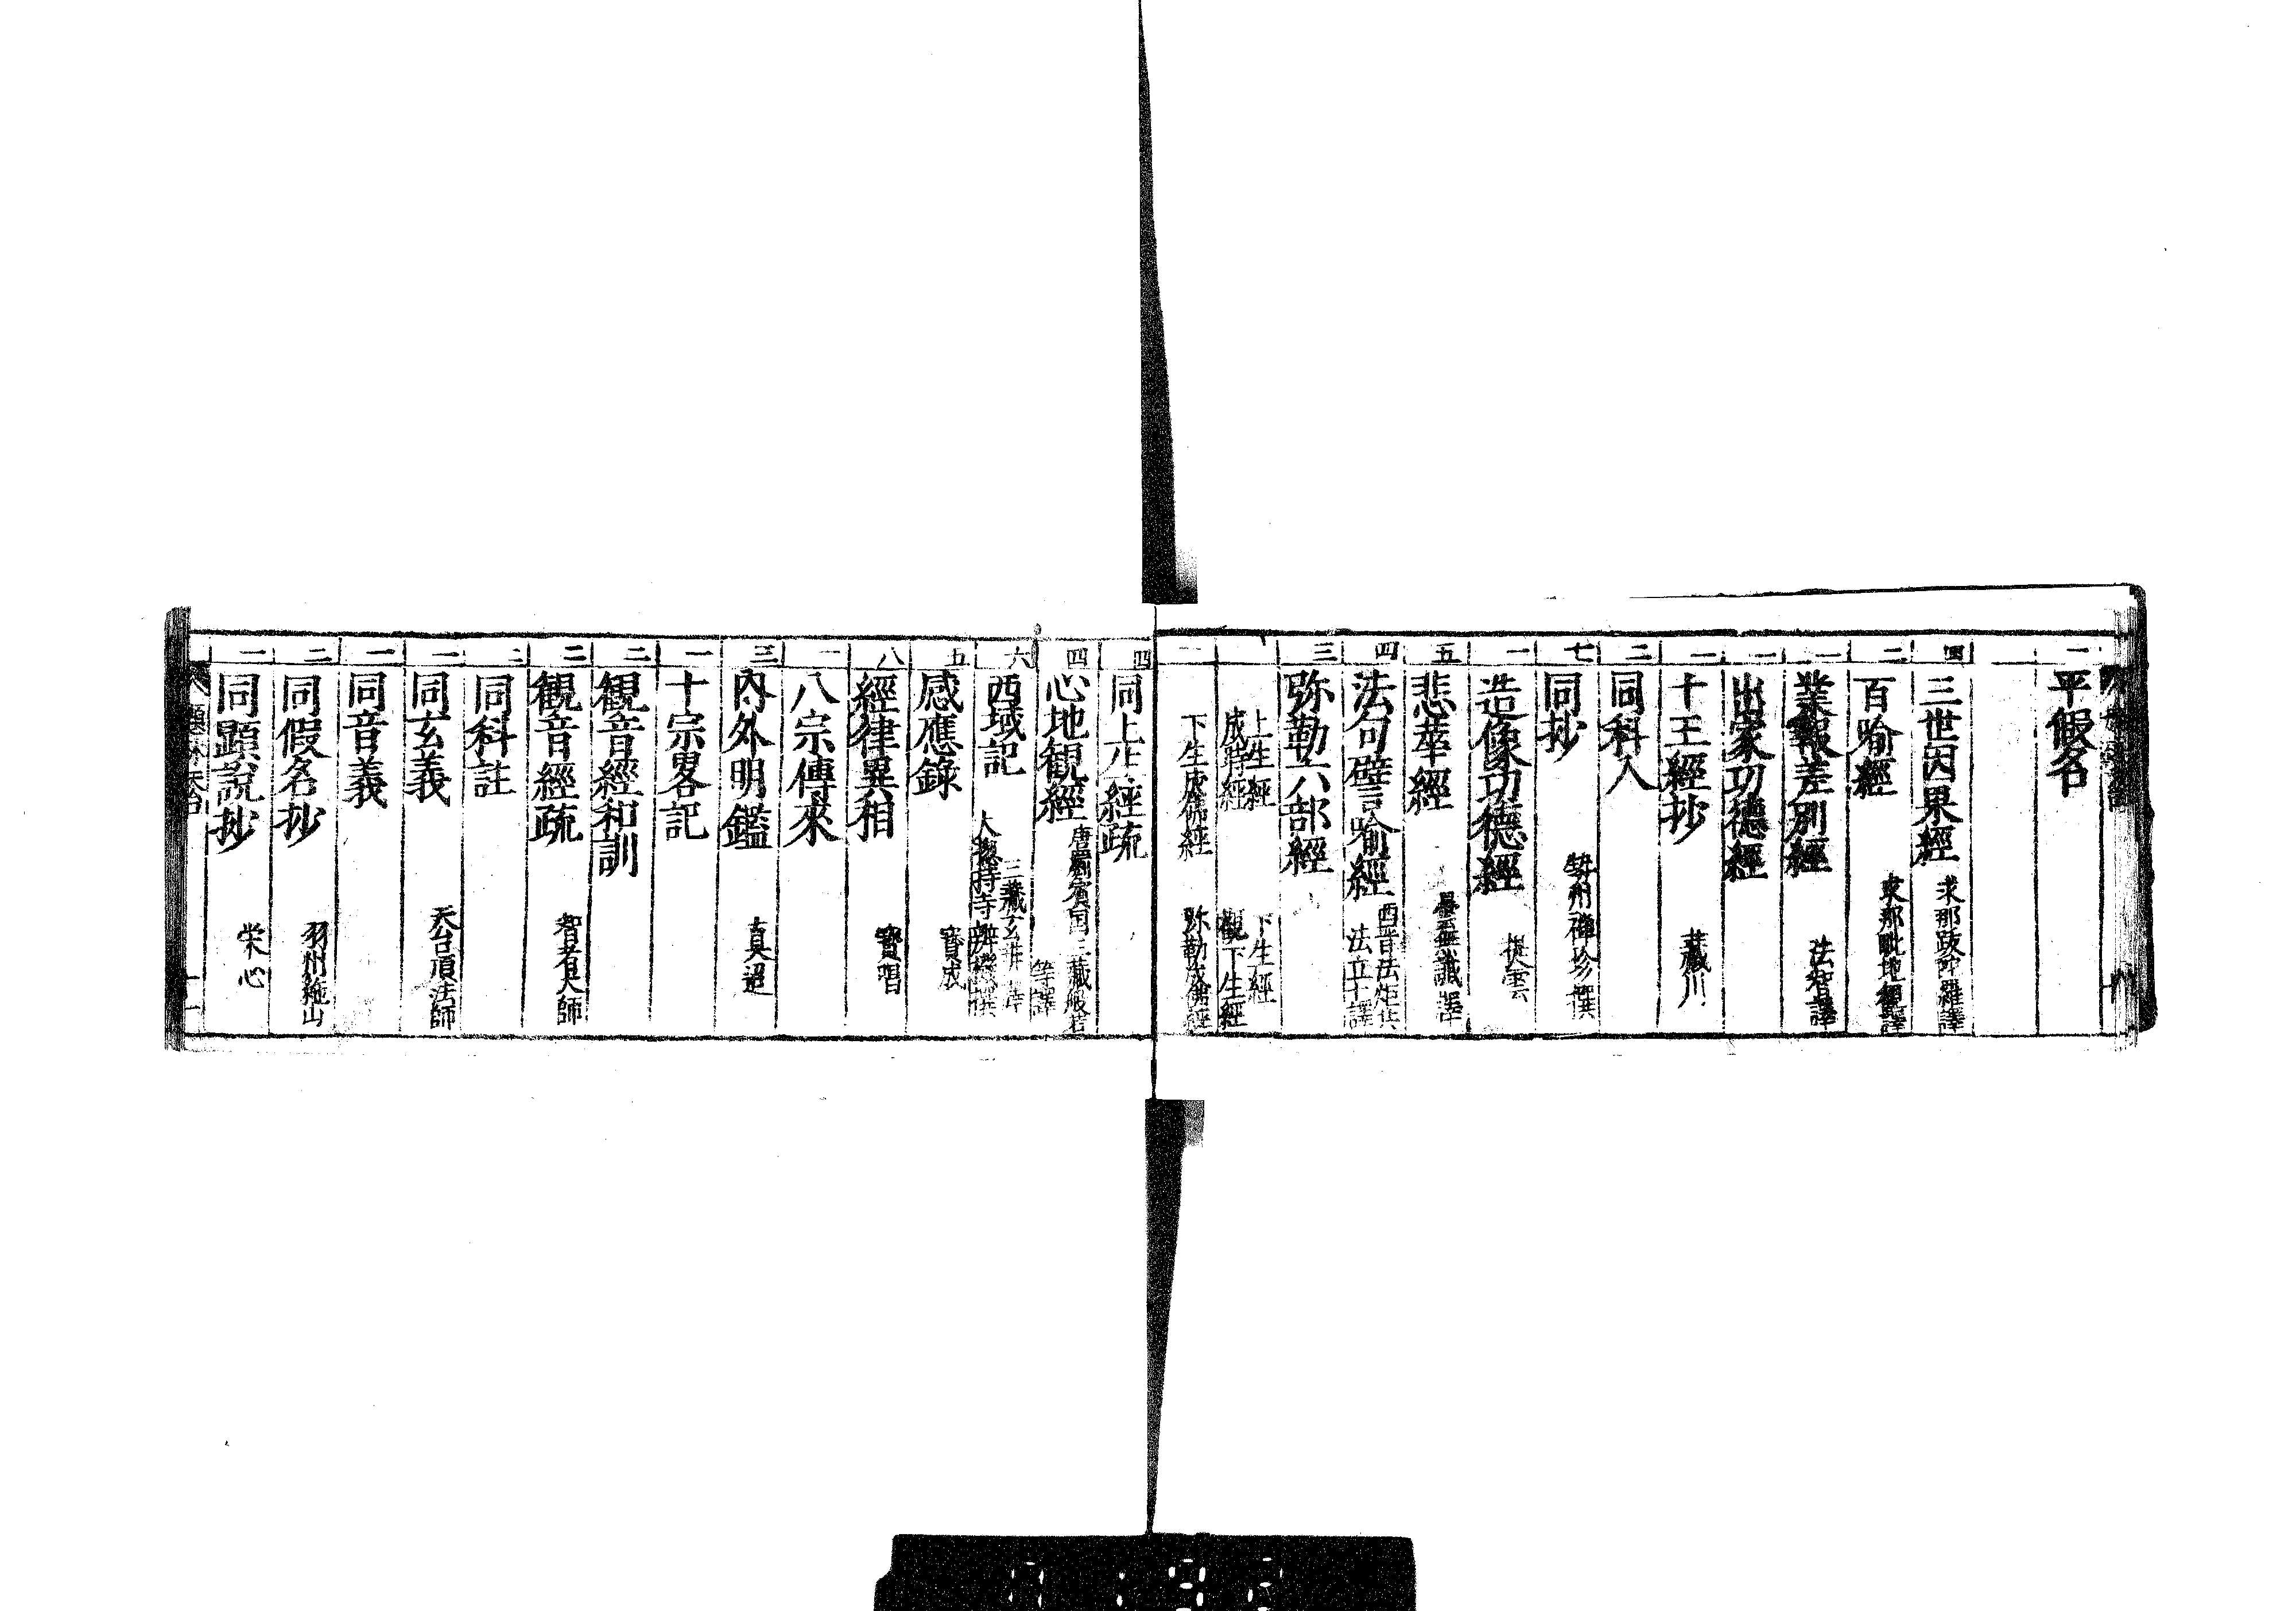 一 平假名
四 三世因果經 求那跋陀羅譯
二 百喻經 求那毗地譯
一 業報差別經 法智譯
一 出家功德經
一 十王經抄 藏川
二 同科入
七 同抄 勢州禪珍撰
一 造像功德經 提雲
五 悲華經 曇無讖譯
四 法句譬喻經 西晋法炬共法立等譯
三 弥勒六部經
上生經 下生經
成時經 觀下生經
下生成佛經 弥勒成佛經
四 同上生經疏
四 心地観經 唐罽賓国三藏般若等譯
六 西域記 三藏玄奘譯
大摠持寺辨機撰
五 感應錄 寶成
八 經律異相 寶唱
一 八宗傳來
三 內外明鑑 真迢
一 十宗畧記
二 観音經和訓
二 観音經疏 智者大師
二 同科註
一 同玄義 天台頂法師
一 同音義
二 同假名抄 羽州
一 同顕說抄 栄心